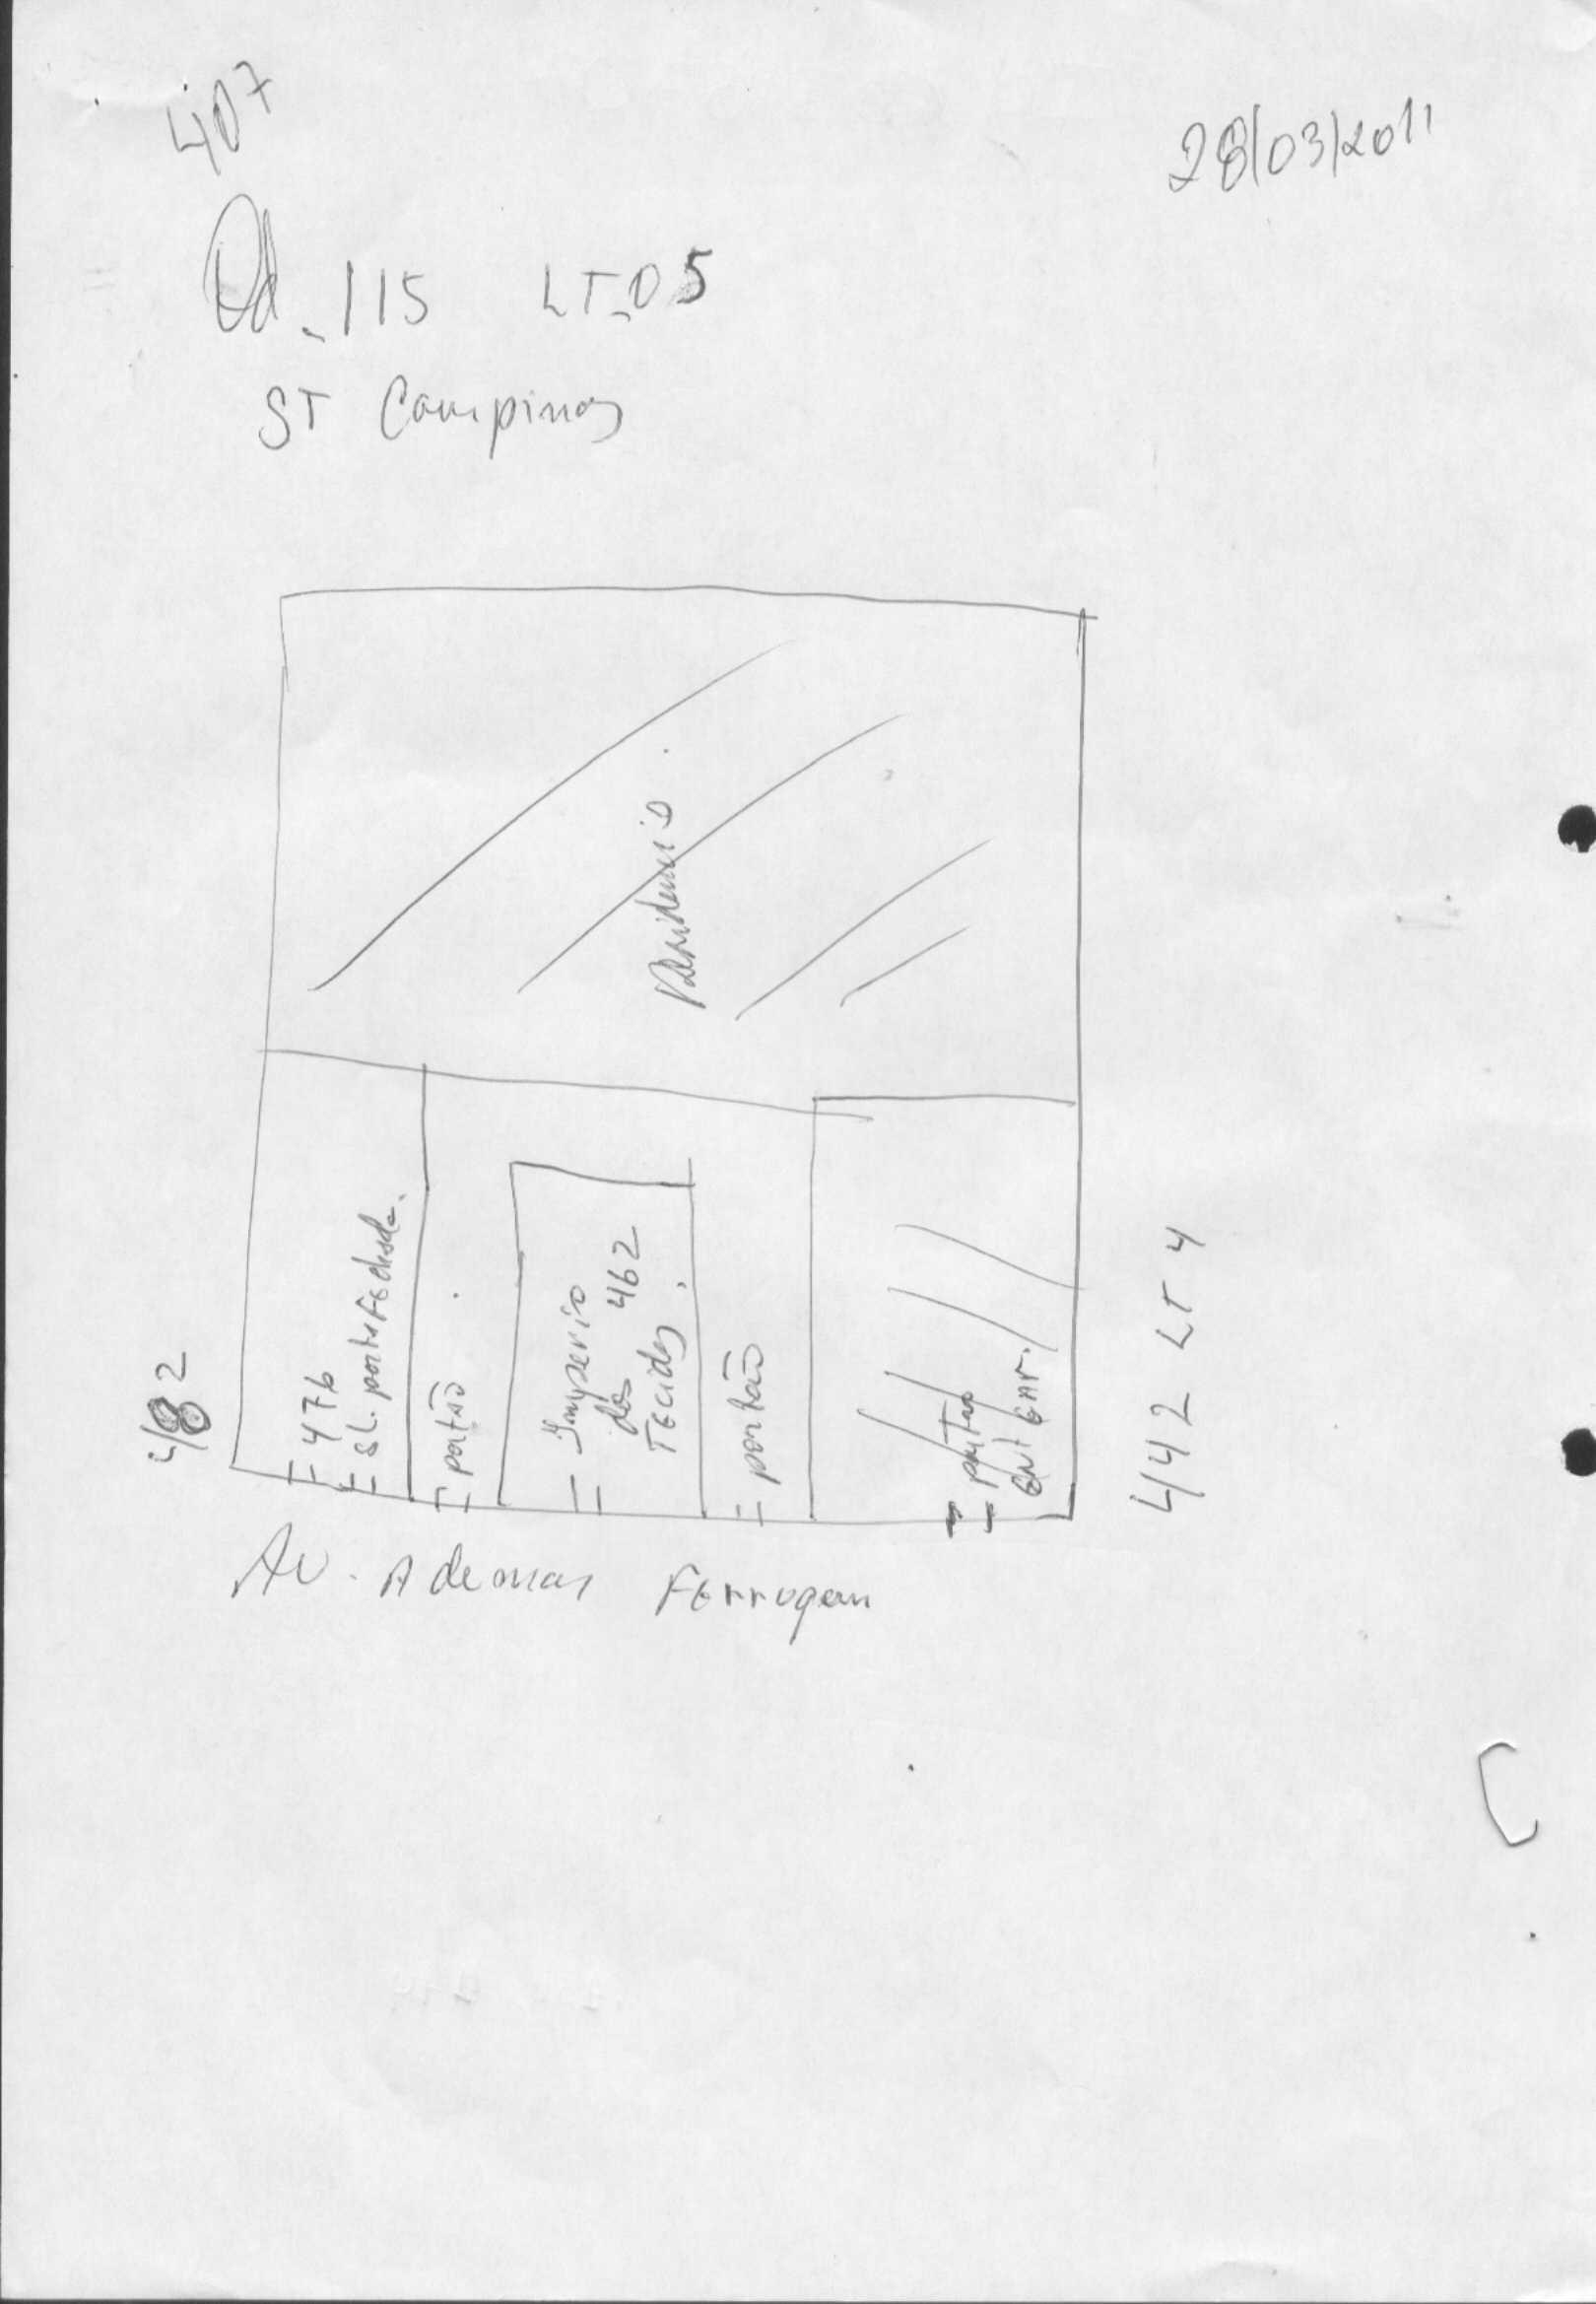 407
28/03/2011
Qd. 115 LT. 05
ST Campinas
Residencia
482
476
SL. porta fechada.
portão
Imperio
dos 462
TECidos.
portão
portao
Ent GAR.
442 LT 4
Av. Ademar Ferrugem